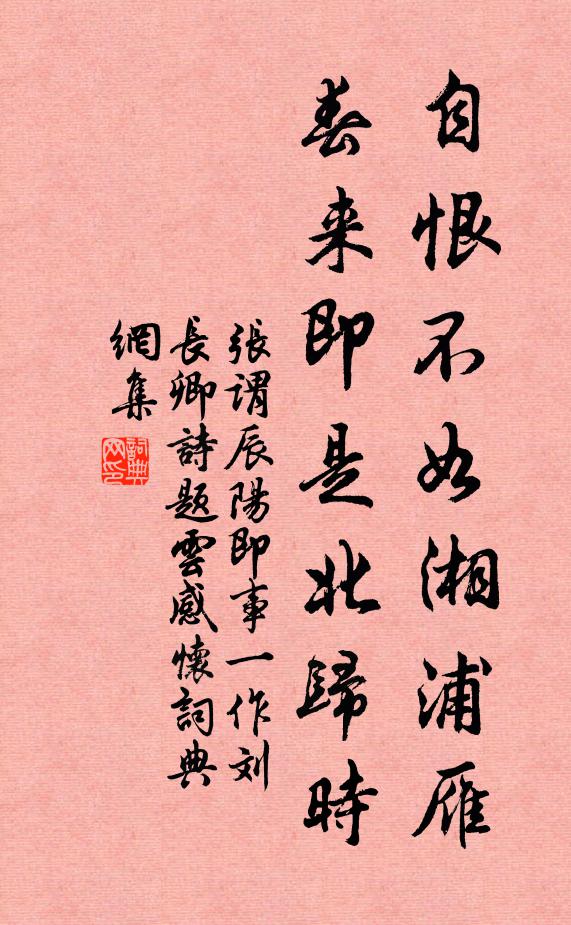 自恨不如湘浦雁
春来即是北歸時
張谓辰陽即事一作刘
長卿詩題雲感懷詞典
網集
詞典
网印